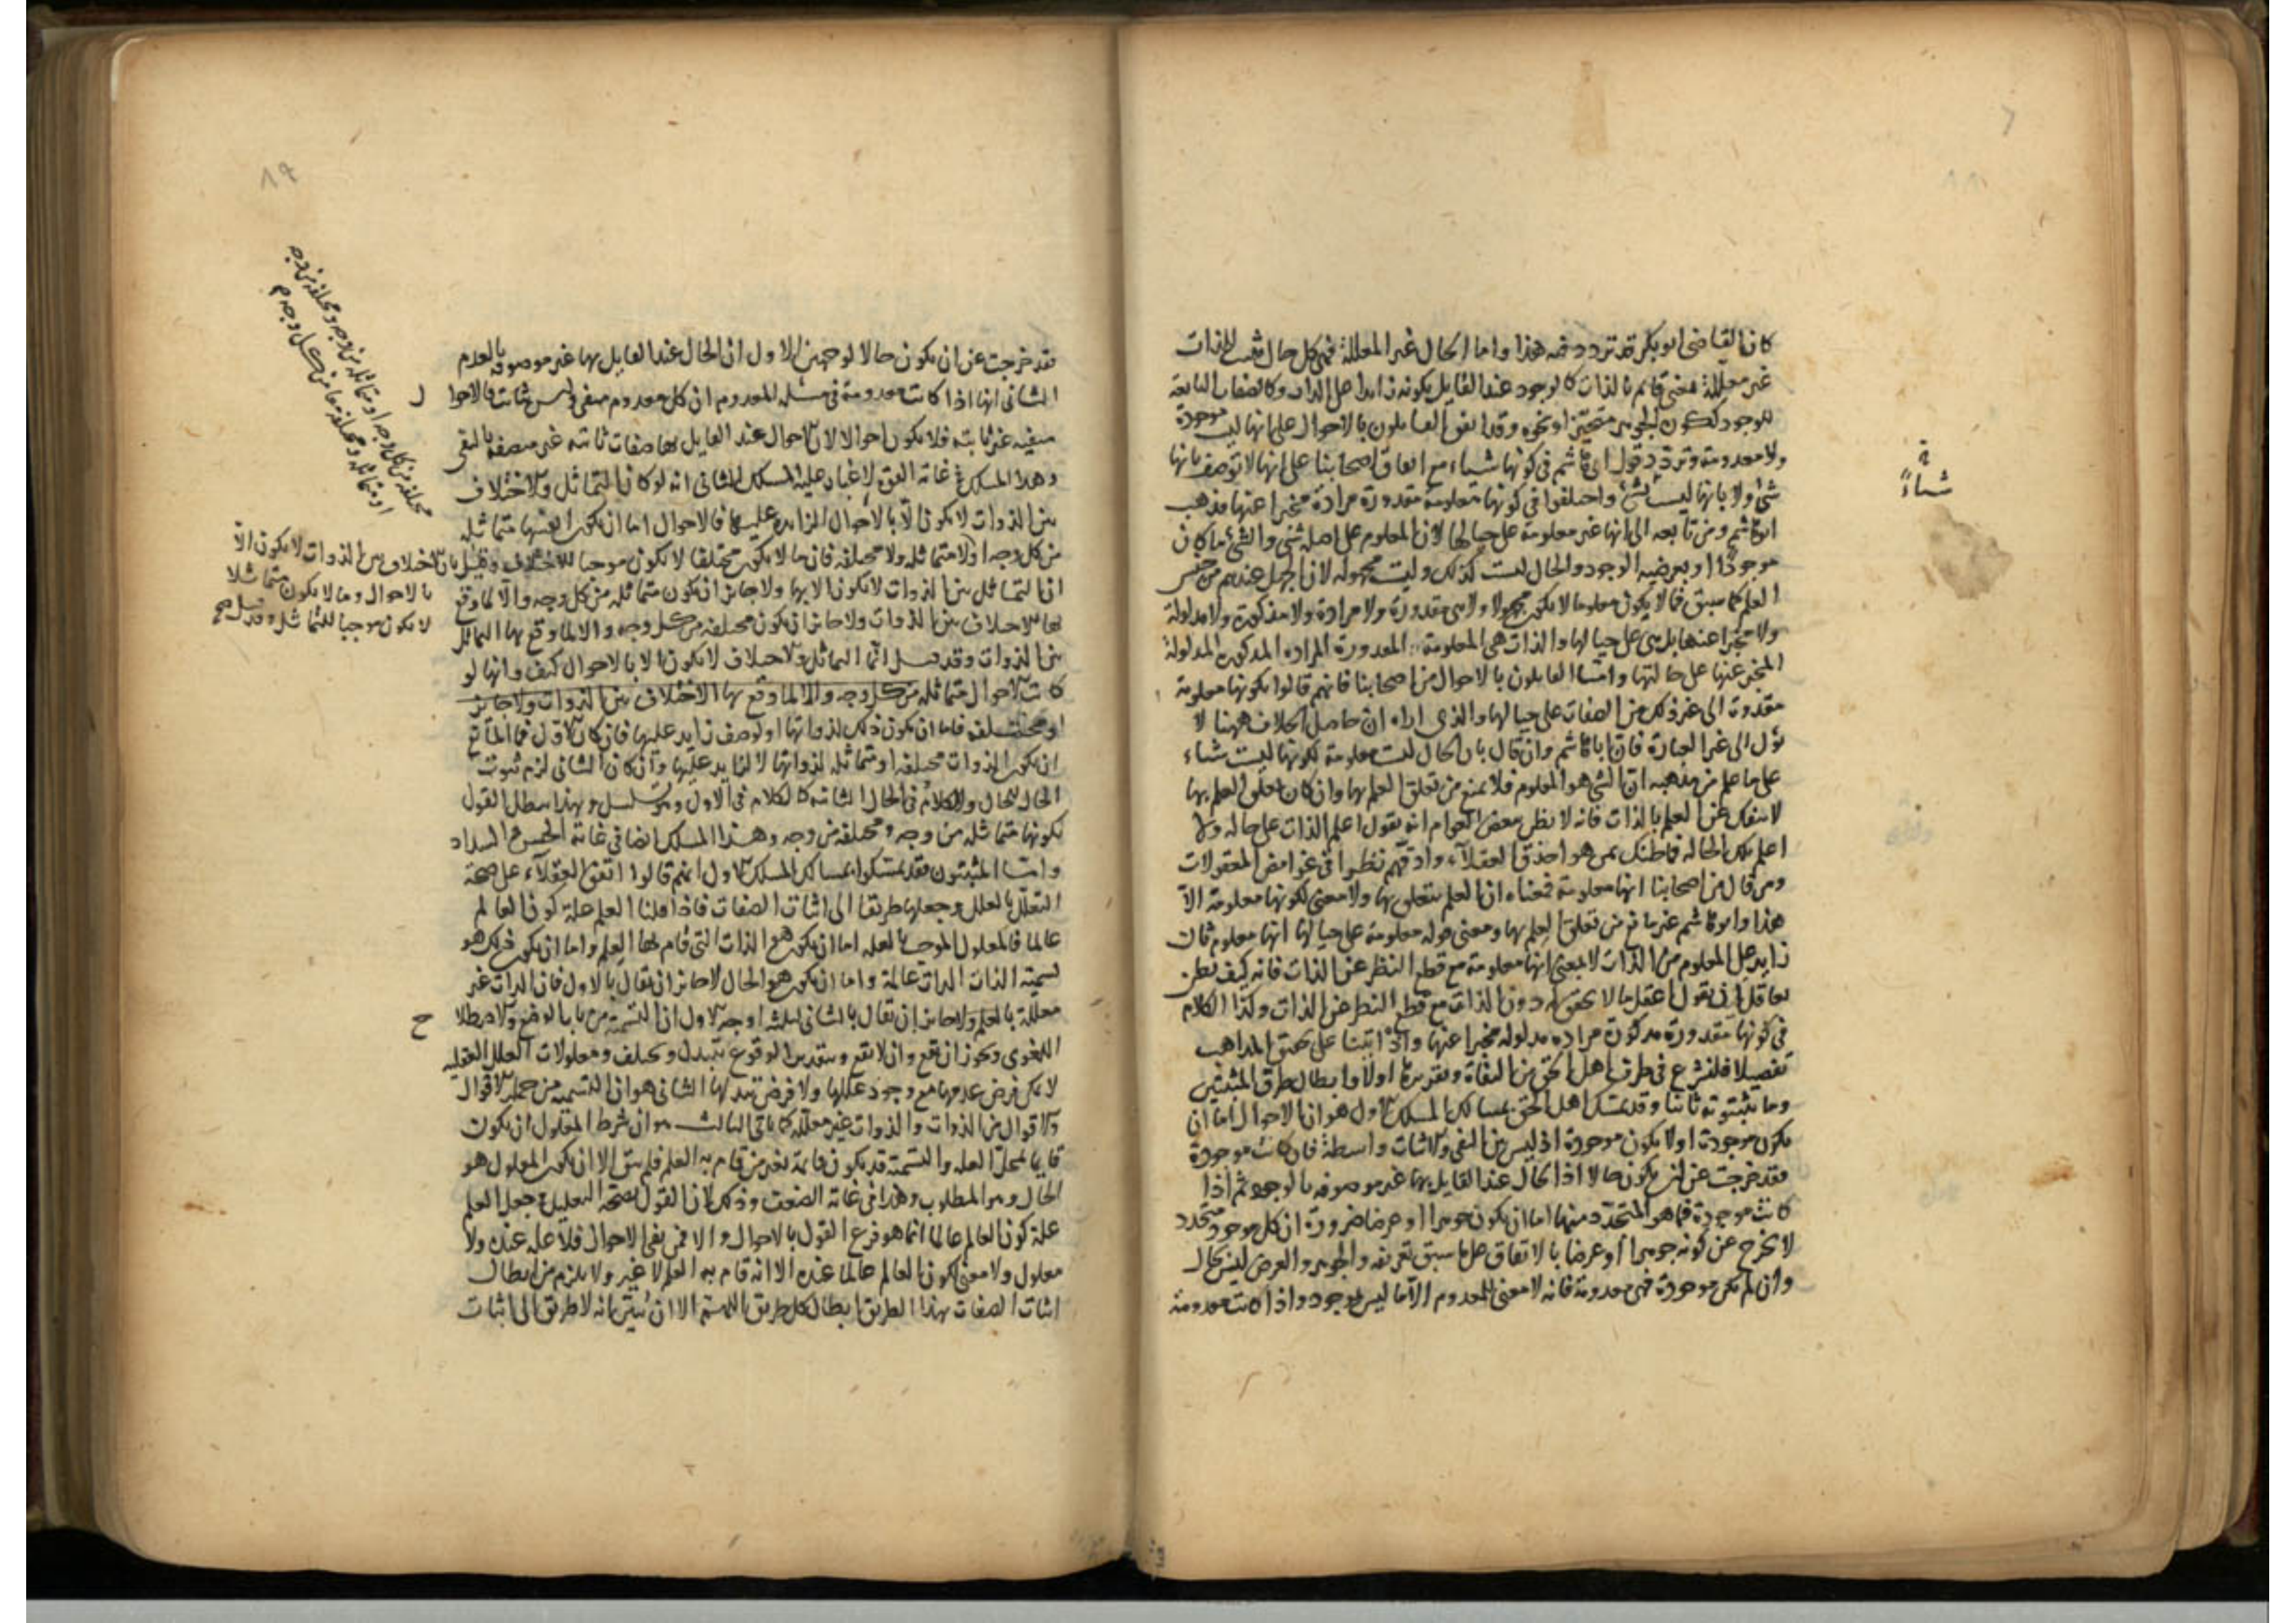 كان القاضى ابو بكر قد تردد فيه هذا واما الحال غير المعللة فهى كل حال تثبت للذات
غير معللة بمعنى قائم بالذات كالوجود عند القايل بكونه زايدا على الذات وكالصفات التابعة
للوجود ككون الجوهر متحيزا ونحوه وقد اتفق القايلون بالاحوال على انها ليست موجودة
ولا معدومة وتردد قول ابى هاشم فى كونها شياء مع اتفاق اصحابنا على انها لا توصف بانها
شئ ولا بانها ليست بشئ واختلفوا فى كونها معلومة مقدورة مرادة مخبرا عنها فذهب
ابو هاشم ومن تابعه الى انها غير معلومة على حيالها لان المعلوم على اصله شئ والشئ ما كان
موجودا او بعرضيه الوجود والحال ليست كذلك وليست مجهوله لان الجهل عندهم من جنس
العلم كما سبق فما لا يكون معلوما لا يكون مجهولا ولا هى مقدورة ولا مرادة ولا مذكورة ولا مدلولة
ولا مخبرا عنها بل هى على حيالها والذات هى المعلومة المقدورة المراده المذكورة المدلولة
المخبر عنها على حالتها واما القايلون بالاحوال من اصحابنا فانهم قالوا بكونها معلومة
مقدورة الى غير ذلك من الصفات على حيالها والذى اراه ان حاصل الخلاف ههنا لا
يؤل الى غير العبارة فان ابا هاشم وان قال بان الحال ليست معلومة لكونها ليست شياء
على ما علم من مذهبه ان الشئ هو المعلوم فلا يمنع من تعلق العلم بها وان كان تعلق العلم بها
لا ينفك عن العلم بالذات فانه لا يظن ببعض العوام انه يقول اعلم الذات على حاله ولا
اعلم تلك الحالة فما ظنك بمن هو احذق العقلاء وادقهم نظرا فى غوامض المعقولات
ومن قال من اصحابنا انها معلومة فمعناه ان العلم متعلق بها ولا معنى لكونها معلومة الا
هذا وابو هاشم غير مانع من تعلق العلم بها ومعنى قوله معلومة على حيالها انها معلوم ثان
زايد على المعلوم من الذات لا بمعنى انها معلومة مع قطع النظر عن الذات فانه كيف يظن
بعاقل ان يقول اعقل ما لا تحقق له دون الذات مع قطع النظر عن الذات وكذا الكلام
فى كونها مقدورة مذكورة مراده مدلوله مخبرا عنها واذ اتينا على تحقيق المذاهب
تفصيلا فلنشرع فى طرق اهل الحق من النفاة وتقريرها اولا وابطال طرق المثبتين
وما يثبتونه ثانيا وقد تمسك اهل الحق بمسالك المسلك الاول هو ان الاحوال اما ان
تكون موجودة او لا تكون موجودة اذ ليس بين النفى والاثبات واسطة فان كانت موجودة
فقد خرجت عن ان تكون حالا اذ الحال عند القايل بها غير موصوفه بالوجود ثم اذا
كانت موجودة فما هو المتجدد منها اما ان يكون جوهرا او عرضا ضرورة ان كل موجود متجدد
لا يخرج عن كونه جوهرا او عرضا بالاتفاق على ما سبق تعريفه والجوهر والعرض ليس بحال
وان لم تكن موجودة فهى معدومة فانه لا معنى للمعدوم الا ما ليس بموجود واذا كانت معدومة
شياءً
٨٩
فقد خرجت عن ان يكون حالا لوجهين الاول ان الحال عند القايل بها غير موصوفه بالعدم
الثانى انها اذا كانت معدومة فى مسئلة المعدوم ان كل معدوم منفى وليس بثابت فالاحوال
منفيه غير ثابته فلا يكون احوالا لان الاحوال عند القايل بها صفات ثابته غير متصفة بالنفى
وهذا المسلك فى غاية القوة لا غبار عليه المسلك الثانى انه لو كان التماثل والاختلاف
بين الذوات لا يكون الا بالاحوال الزايدة عليها فالاحوال اما ان تكون انفسها متماثله
من كل وجه اولا متماثله ولا مختلفه فان ما لا يكون مختلفا لا يكون موجبا للاختلاف وقيل بان الاختلاف بين الذوات لا يكون الا
ان التماثل بين الذوات لا يكون الا بها ولا جايز ان يكون متماثله من كل وجه والا لما وقع
بها الاختلاف بين الذوات ولا جايز ان يكون مختلفه من كل وجه والا لما وقع بها التماثل
بين الذوات وقد قيل ان التماثل والاختلاف لا يكون الا بالاحوال كيف وانها لو
كانت الاحوال متماثله من كل وجه والا لما وقع بها الاختلاف بين الذوات ولا جايز
او مختلفه فاما ان يكون ذلك لذواتها او لوصف زايد عليها فان كان الاول فما المانع
ان يكون الذوات مختلفه او متماثله لذواتها لا لزايد عليها وان كان الثانى لزم ثبوت
الحال للحال والكلام فى الحال الثانيه كالكلام فى الاول وهو تسلسل وبهذا يبطل القول
بكونها متماثله من وجه ومختلفه من وجه وهذا المسلك ايضا فى غاية الحسن والسداد
واما المثبتون فقد تمسكوا بمسالك المسلك الاول انهم قالوا اتفق العقلاء على صحة
التعلل بالعلل وجعلها طريقا الى اثبات الصفات فاذا قلنا العلم علة كون العالم
عالما فالمعلول الموجب بالعله اما ان يكون هو الذات التى قام بها العلم واما ان يكون ذلك هو
تسمية الذات عالمة واما ان يكون هو الحال لا جايز ان يقال بالاول فان الذات غير
معللة بالعلم ولا جايز ان يقال بالثانى لثلثه اوجه الاول ان التسمية من باب الوضع والاصطلاح
اللغوى ويجوز ان يقع وان لا يقع وبتقدير الوقوع تتبدل وتختلف ومعلولات العلل العقليه
لا يمكن فرض عدمها مع وجود عللها ولا فرض تبدلها الثانى هو ان التسمية من جملة الاقوال
والاقوال من الذوات والذوات غير معللة كما ياتى الثالث هو ان شرط المعلول ان يكون
قايما بمحل العله والتسمية قد يكون قايمة بغير من قام به العلم فلم يبق الا ان يكون المعلول هو
الحال وهو المطلوب وهذا فى غاية الضعف وذلك لان القول بصحة التعليل وجعل العلم
علة كون العالم عالما انما هو فرع القول بالاحوال والا فمن نفى الاحوال فلا علة عنده ولا
معلول ولا معنى لكون العالم عالما عنده الا انه قام به العلم لا غير ولا يلزم من ابطال
اثبات الصفات بهذا الطريق ابطال كل طريق اللهم الا ان يبين انه لا طريق الى اثبات
مختلفه من كل وجه او متماثله من وجه ومختلفه من وجه
او متماثله ومختلفه معا من كل وجه
بالاحوال وما لا يكون متماثلا
لا يكون موجبا للتماثل وقد قيل صح